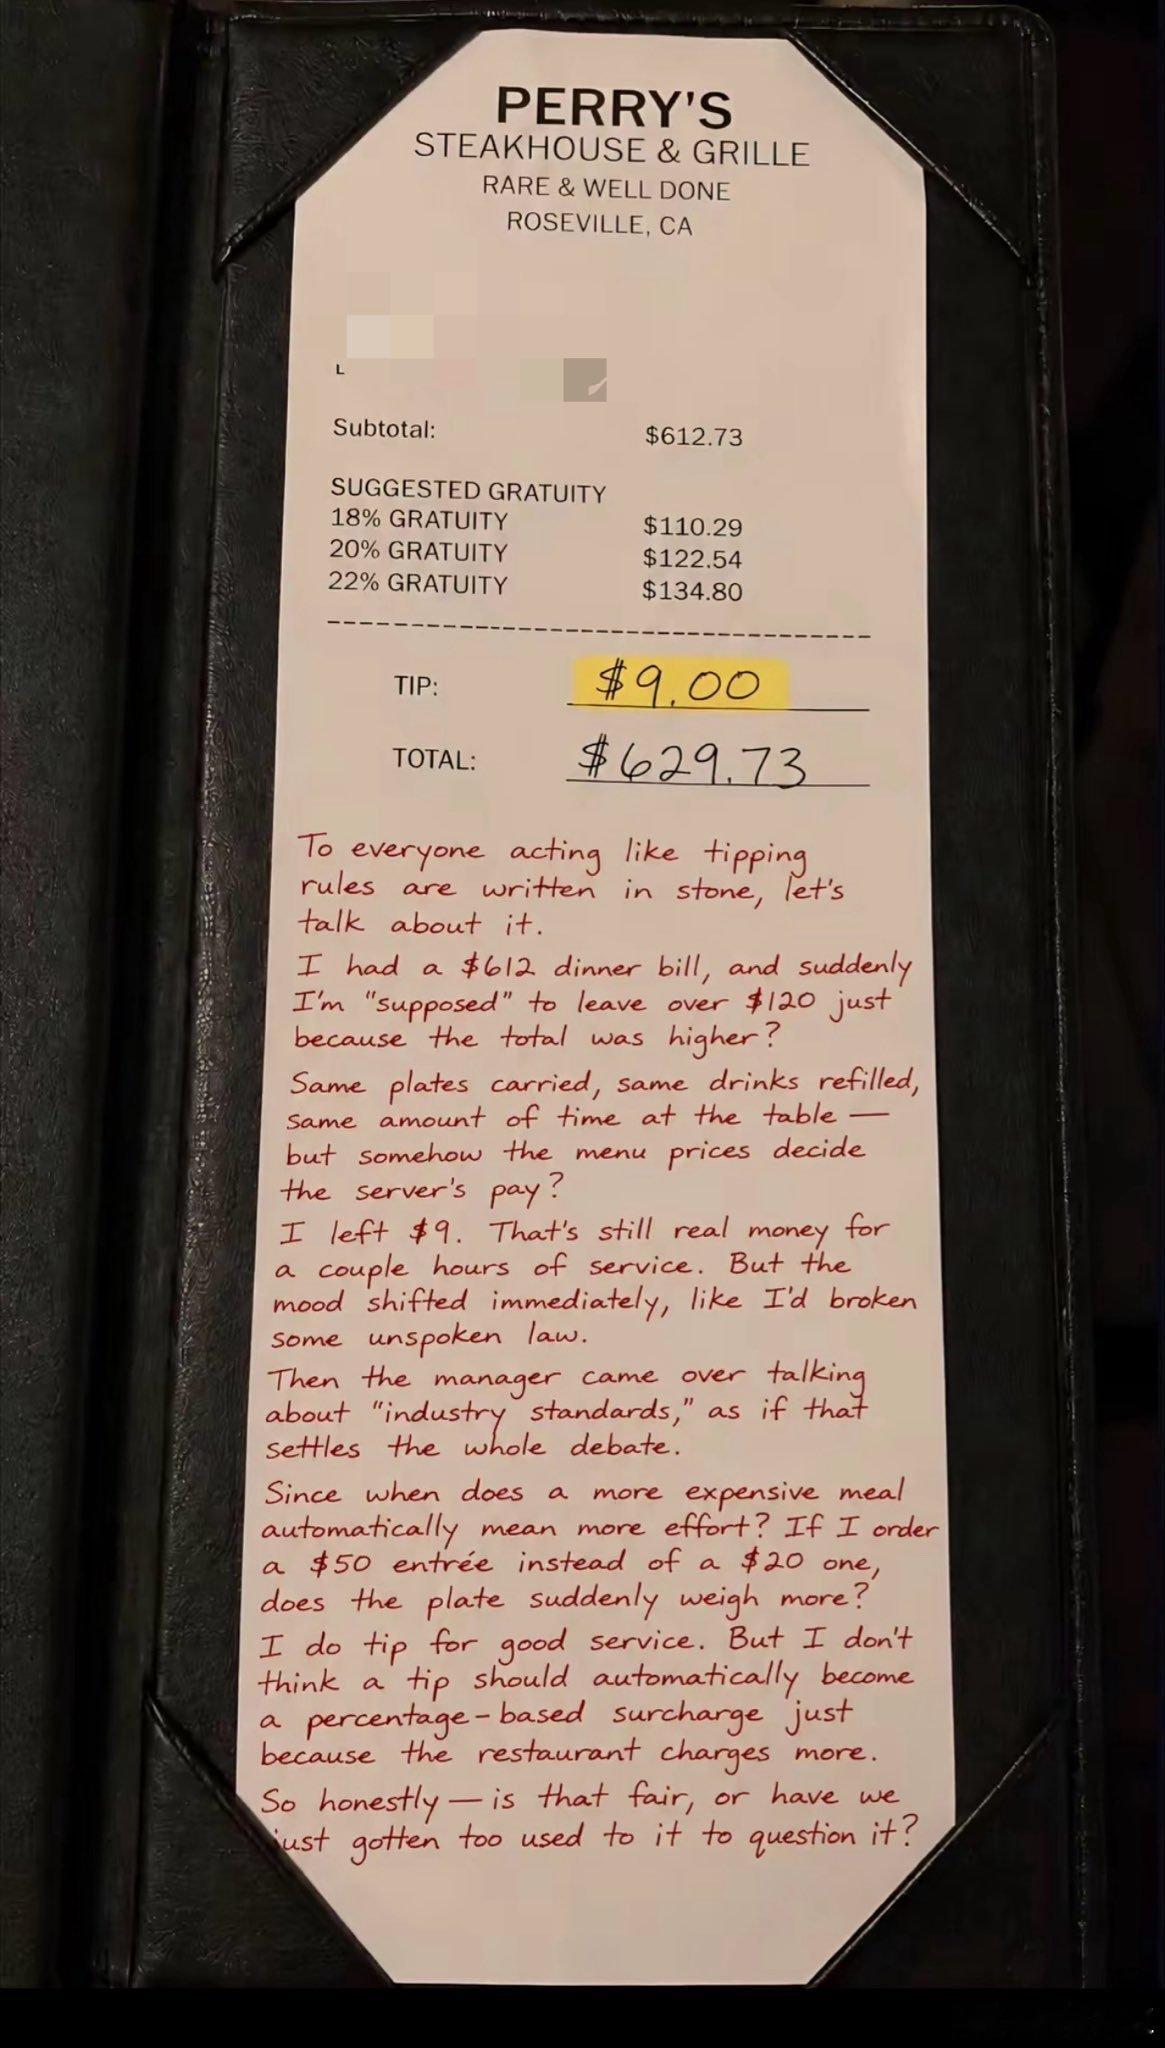 PERRY'S
STEAKHOUSE & GRILLE
RARE & WELL DONE
ROSEVILLE, CA
L
Subtotal: $612.73
SUGGESTED GRATUITY
18% GRATUITY $110.29
20% GRATUITY $122.54
22% GRATUITY $134.80
TIP: $9.00
TOTAL: $629.73
To everyone acting like tipping
rules are written in stone, let's
talk about it.
I had a $612 dinner bill, and suddenly
I'm "supposed" to leave over $120 just
because the total was higher?
Same plates carried, same drinks refilled,
same amount of time at the table —
but somehow the menu prices decide
the server's pay?
I left $9. That's still real money for
a couple hours of service. But the
mood shifted immediately, like I'd broken
some unspoken law.
Then the manager came over talking
about "industry standards," as if that
settles the whole debate.
Since when does a more expensive meal
automatically mean more effort? If I order
a $50 entrée instead of a $20 one,
does the plate suddenly weigh more?
I do tip for good service. But I don't
think a tip should automatically become
a percentage-based surcharge just
because the restaurant charges more.
So honestly — is that fair, or have we
just gotten too used to it to question it?